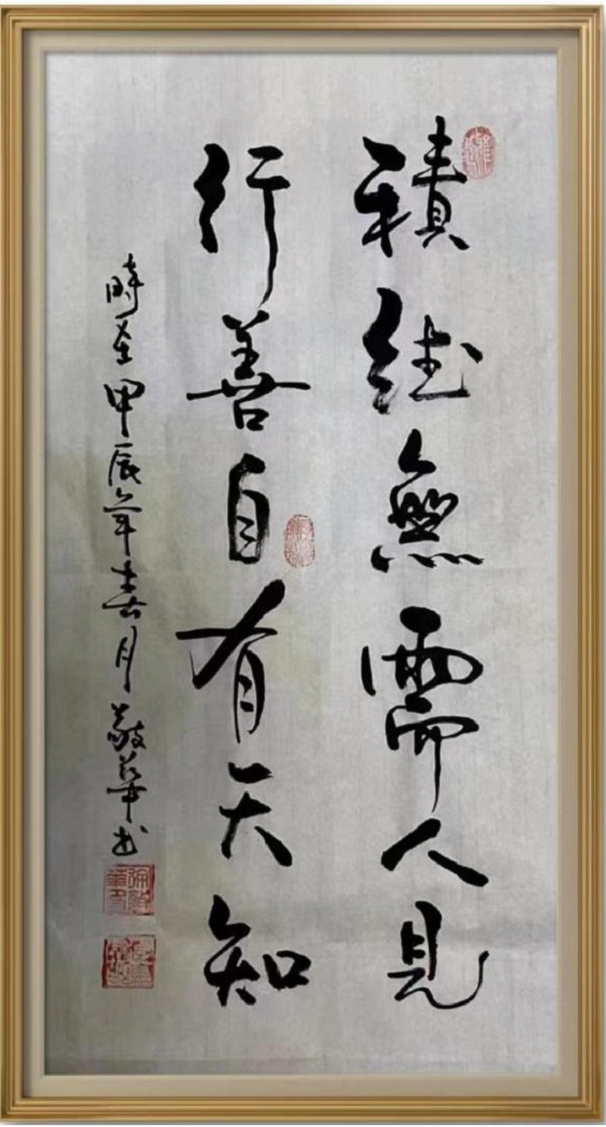 積德無需人見
行善自有天知
時至甲辰年春月敬華书